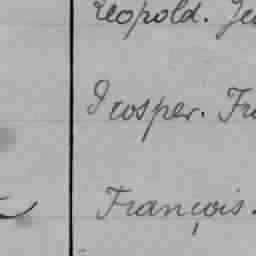 Leopold. Je
Prosper. Fr
François.